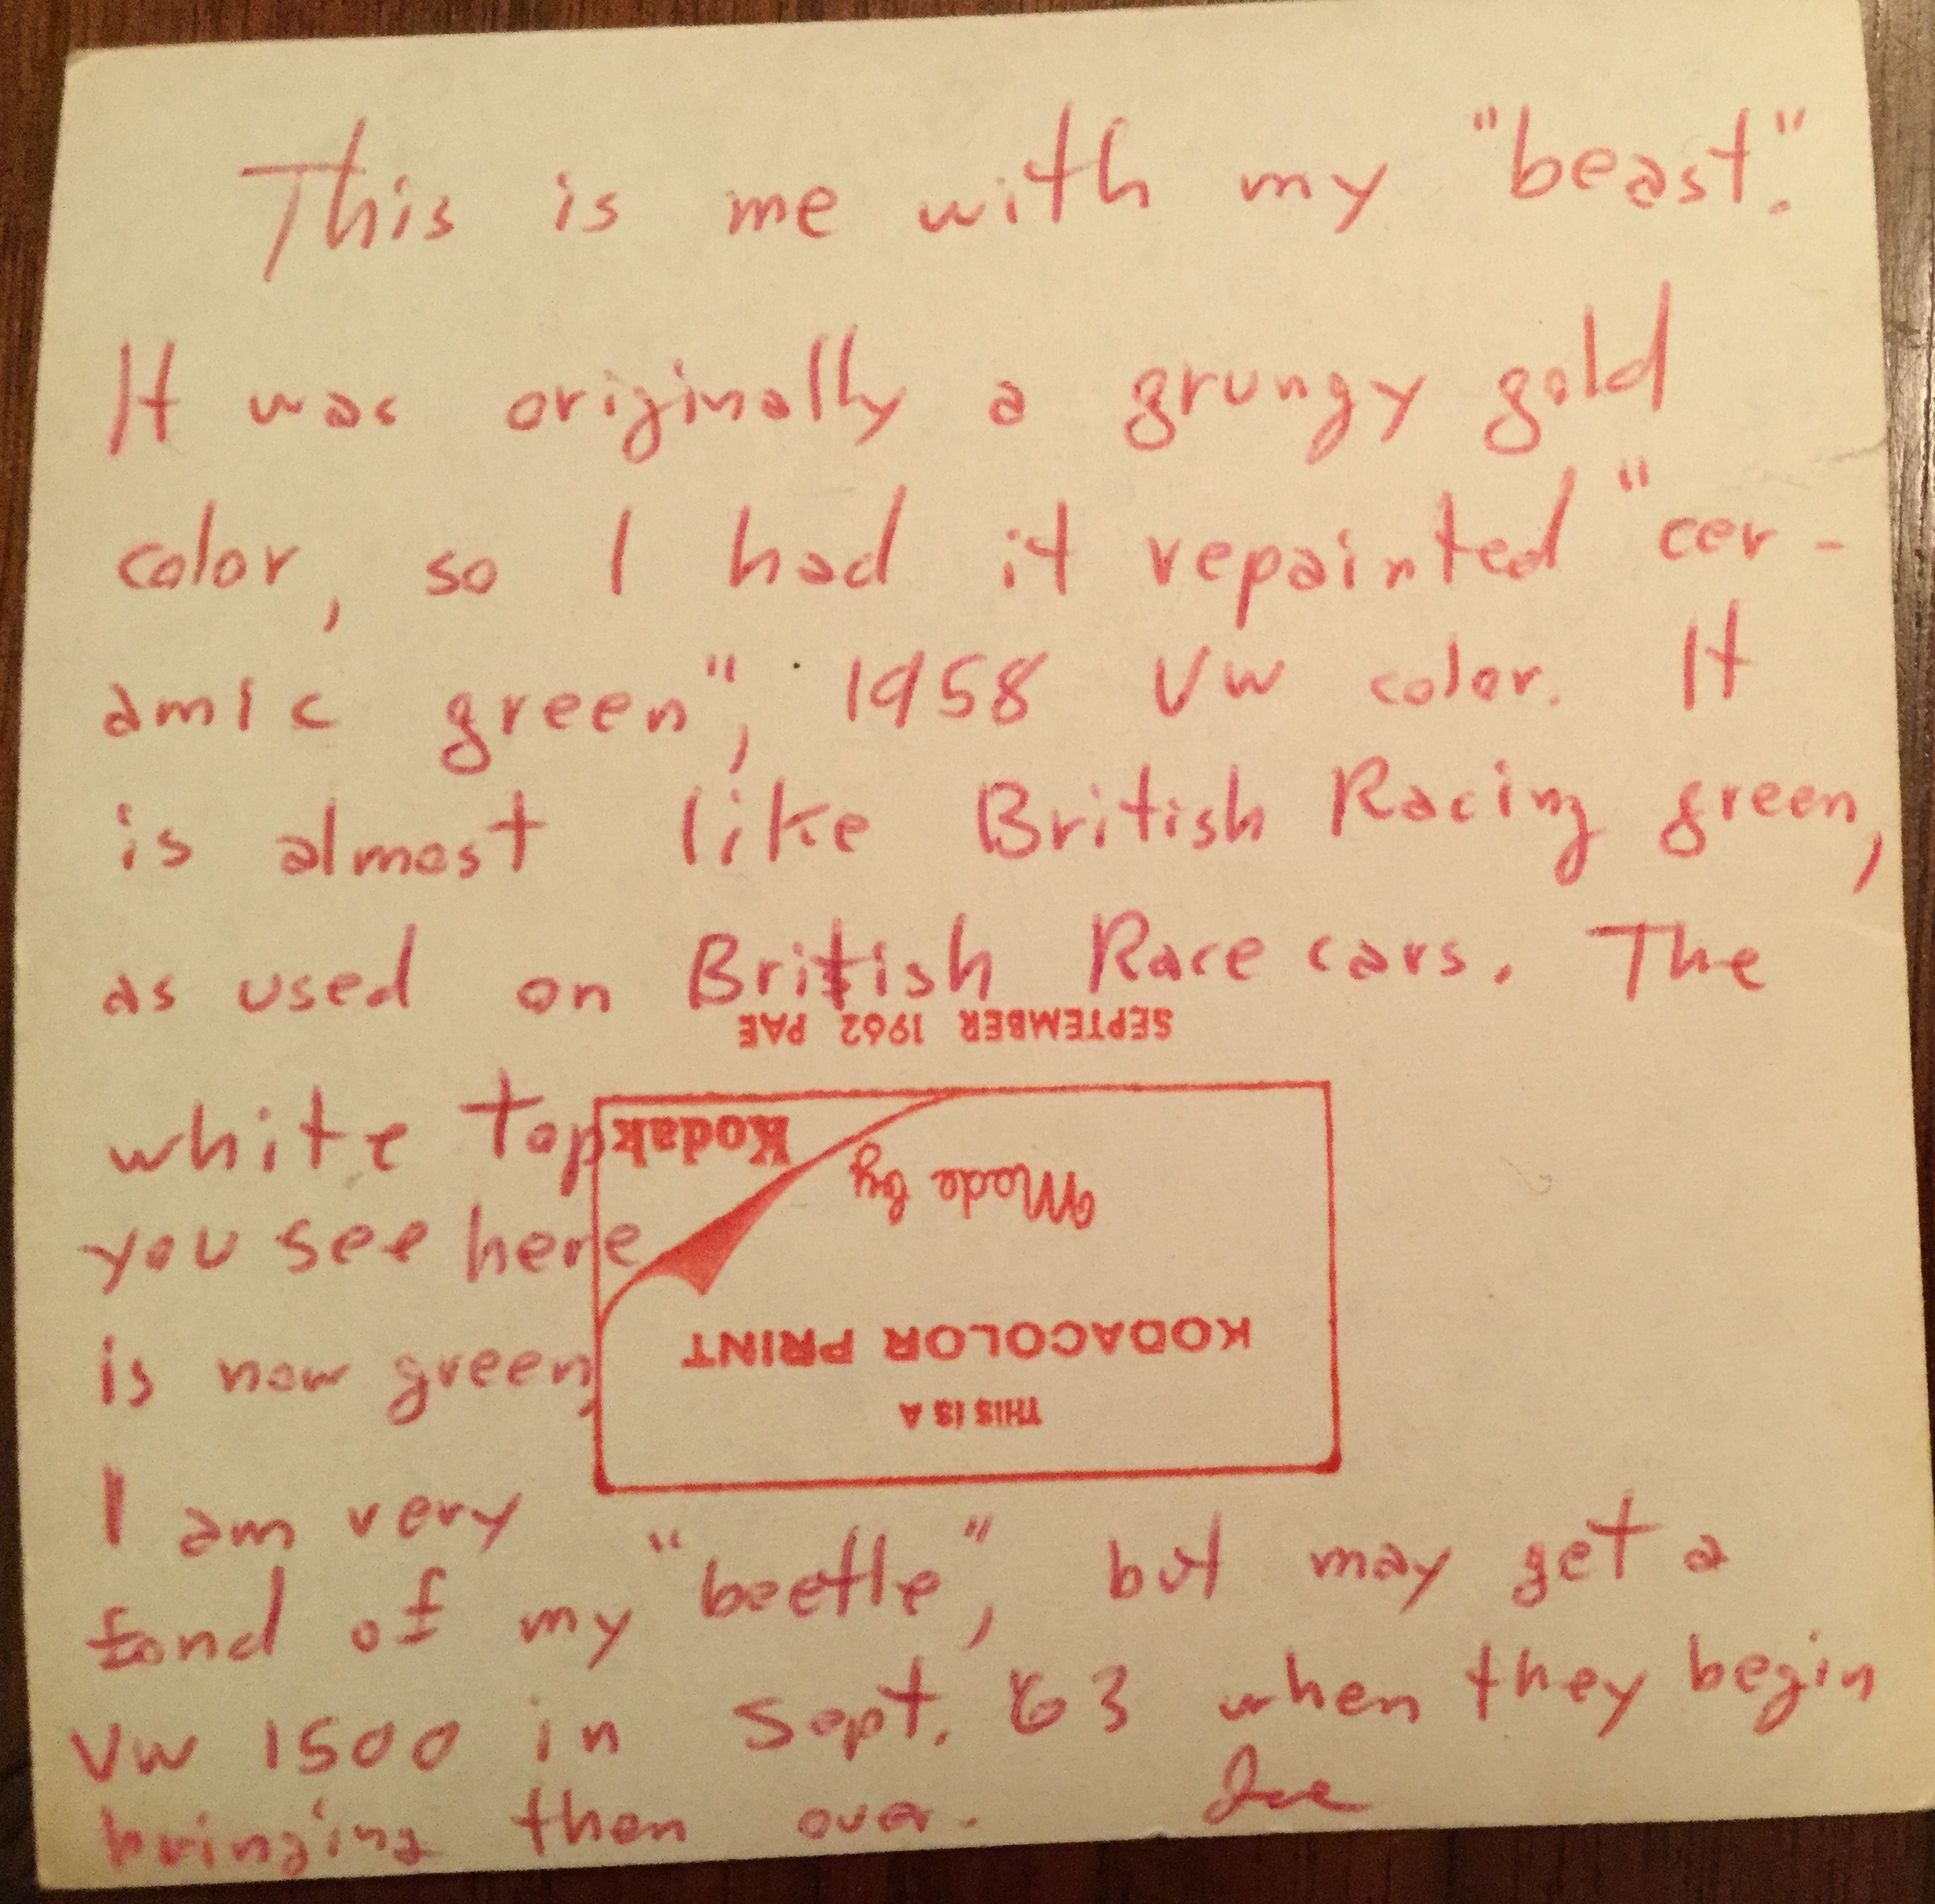 This is me with my "beast."
It was originally a grungy gold
color, so I had it repainted "cer-
amic green", 1958 VW color. It
is almost like British Racing green,
as used on British Race cars. The
white top
you see here
is now green,
I am very
fond of my "beetle", but may get a
VW 1500 in Sept. 63 when they begin
bringing them over. Joe
SEPTEMBER 1962 PAE
THIS IS A
KODACOLOR PRINT
Made by
Kodak